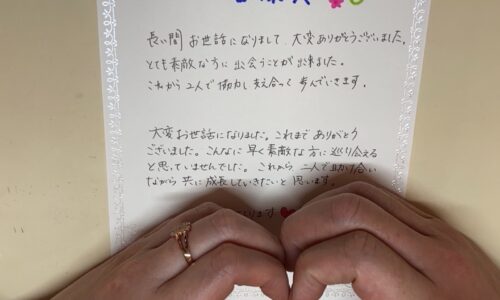 長い間 お世話になりまして、大変ありがとうございました。
とても素敵な方に出会うことが出来ました。
これから二人で協力し支え合って歩んでいきます。
大変お世話になりました。これまでありがとう
ございました。こんなに早く素敵な方に巡り会える
と思っていませんでした。これから二人で助け合い
ながら共に成長していきたいと思います。
ります